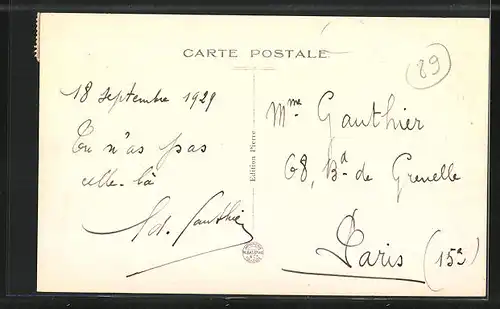 CARTE POSTALE
89
18 septembre 1929
Tu n'as pas
celle-là
Ad. Gauthier
Edition Pierre
Mme Gauthier
68, Bd de Grenelle
Paris (15e)